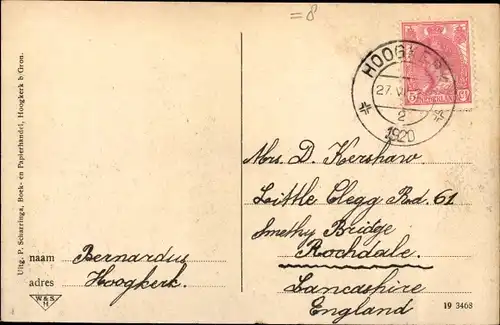 =8
HOOGKERK
27.VI
2
1920
Mrs. D. Kershaw
Little Clegg Rd. 61
Smethy Bridge
Rochdale.
Lancashire
England
naam Bernardus
adres Hoogkerk.
Uitg. P. Scharringa, Boek- en Papierhandel, Hoogkerk b Gron.
W&S
H
19 3468